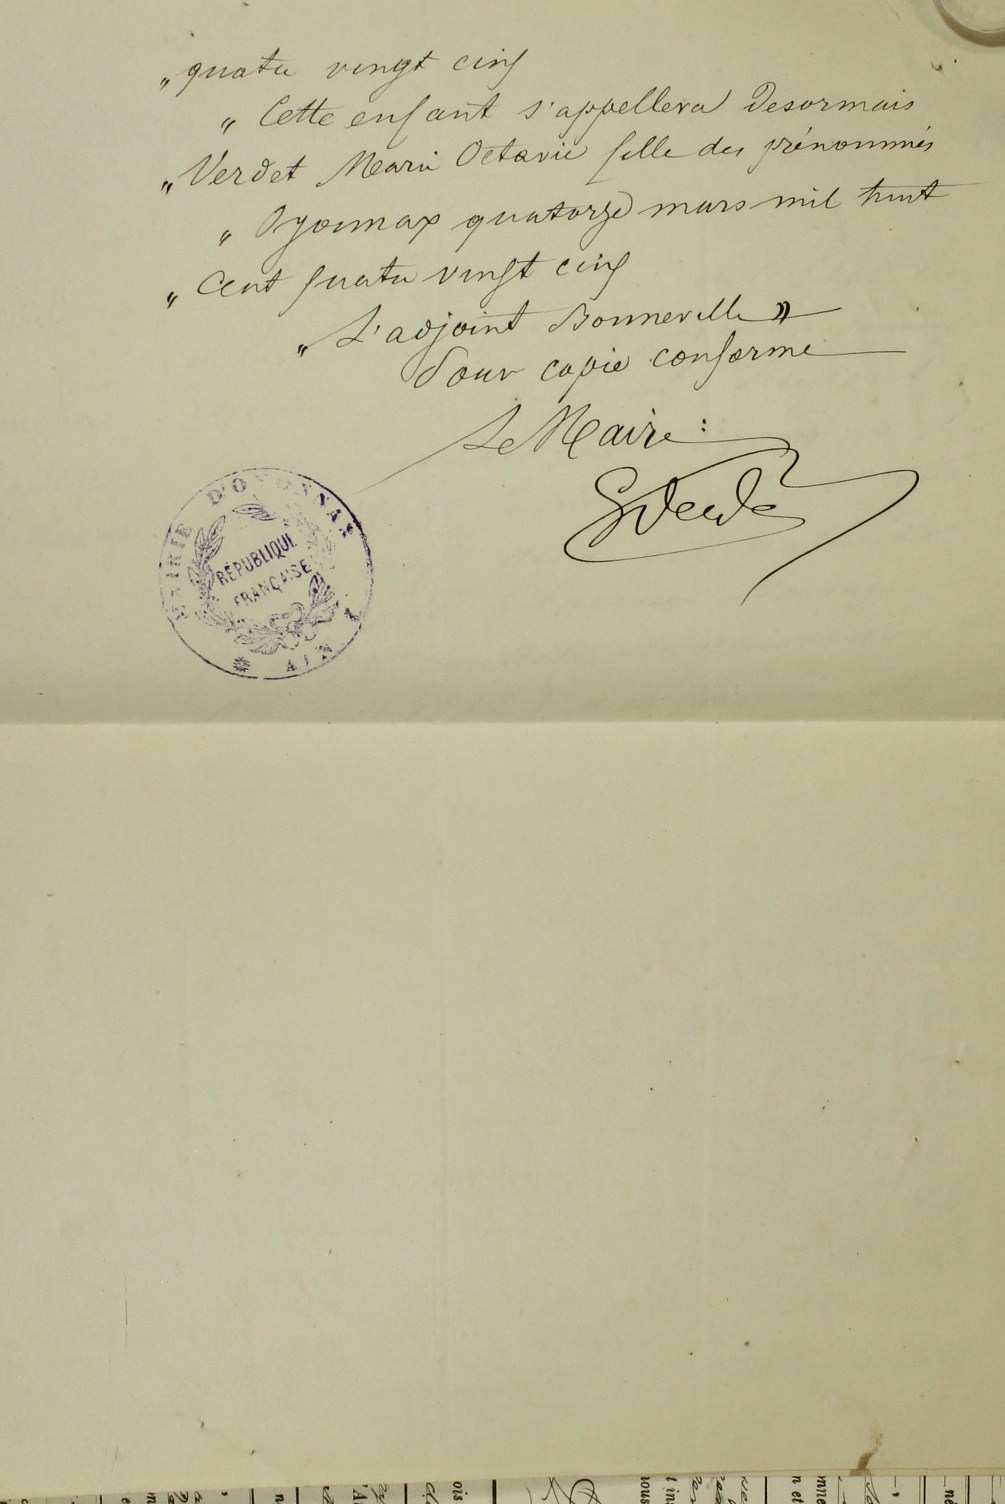 „ quatre vingt cinq
„ Cette enfant s'appellera Desormais
„ Verdet Marie Octavie fille des prénommés
„ Oyonnax quatorze mars mil huit
„ Cent quatre vingt cinq
„ L'adjoint Bonneville »
Pour copie conforme
Le Maire :
MAIRIE D'OYONNAX
RÉPUBLIQUE
FRANÇAISE
* AIN *